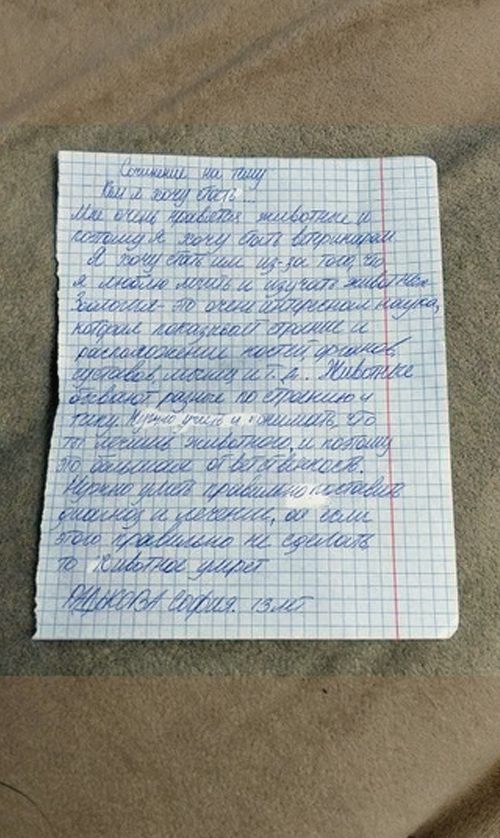 Сочинение на тему
Кем я хочу быть...
Мне очень нравятся животные и
поэтому я хочу быть ветеринаром.
Я хочу стать им из-за того, что
я люблю лечить и изучать животных.
Зоология - это очень интересная наука,
которая показывает строение и
расположение костей, органов,
суставов, мышц и т.д. Животные
бывают разные по строению и
типу. Нужно учить и понимать, что
ты лечишь животного, и поэтому
это большая ответственность.
Нужно уметь правильно поставить
диагноз и лечение, а если
этого правильно не сделать
то животное умрет
СОФИЯ. 13 лет